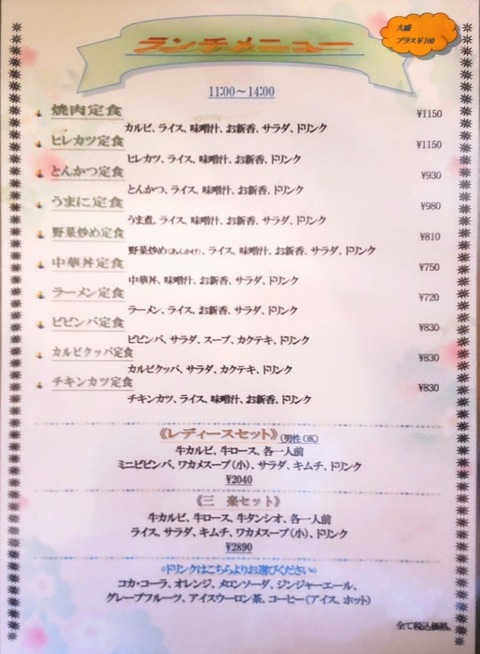 ランチメニュー
大盛
プラス¥100
11:00～14:00
焼肉定食 ¥1150
カルビ、ライス、味噌汁、お新香、サラダ、ドリンク
ヒレカツ定食 ¥1150
ヒレカツ、ライス、味噌汁、お新香、ドリンク
とんかつ定食 ¥930
とんかつ、ライス、味噌汁、お新香、ドリンク
うまに定食 ¥980
うま煮、ライス、味噌汁、お新香、サラダ、ドリンク
野菜炒め定食 ¥810
野菜炒め(あんかけ)、ライス、味噌汁、お新香、ドリンク
中華丼定食 ¥750
中華丼、味噌汁、お新香、サラダ、ドリンク
ラーメン定食 ¥720
ラーメン、ライス、お新香、サラダ、ドリンク
ビビンバ定食 ¥830
ビビンバ、サラダ、スープ、カクテキ、ドリンク
カルビクッパ定食 ¥830
カルビクッパ、サラダ、カクテキ、ドリンク
チキンカツ定食 ¥830
チキンカツ、ライス、味噌汁、お新香、ドリンク
《レディースセット》(男性OK)
牛カルビ、牛ロース、各一人前
ミニビビンバ、ワカメスープ(小)、サラダ、キムチ、ドリンク
¥2040
《三　楽セット》
牛カルビ、牛ロース、牛タンシオ、各一人前
ライス、サラダ、キムチ、ワカメスープ(小)、ドリンク
¥2890
○ドリンクはこちらよりお選びください○
コカ・コーラ、オレンジ、メロンソーダ、ジンジャーエール、
グレープフルーツ、アイスウーロン茶、コーヒー(アイス、ホット)
全て税込価格。